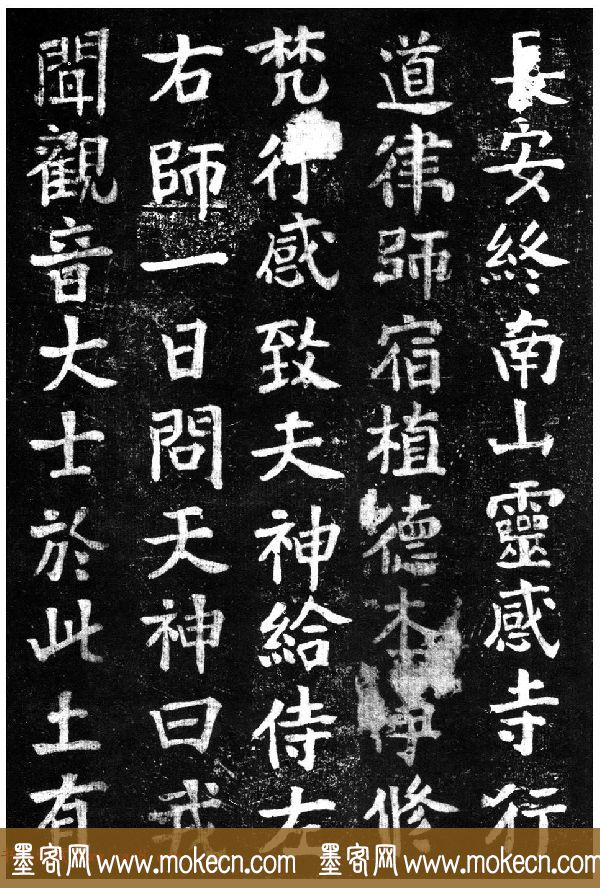 長安終南山靈感寺行
道律師宿植德本淨修
梵行感致夫神給侍左
右師一日問天神曰我
聞觀音大士於此土有
墨客网 www.mokecn.com 墨客网 www.mokecn.com